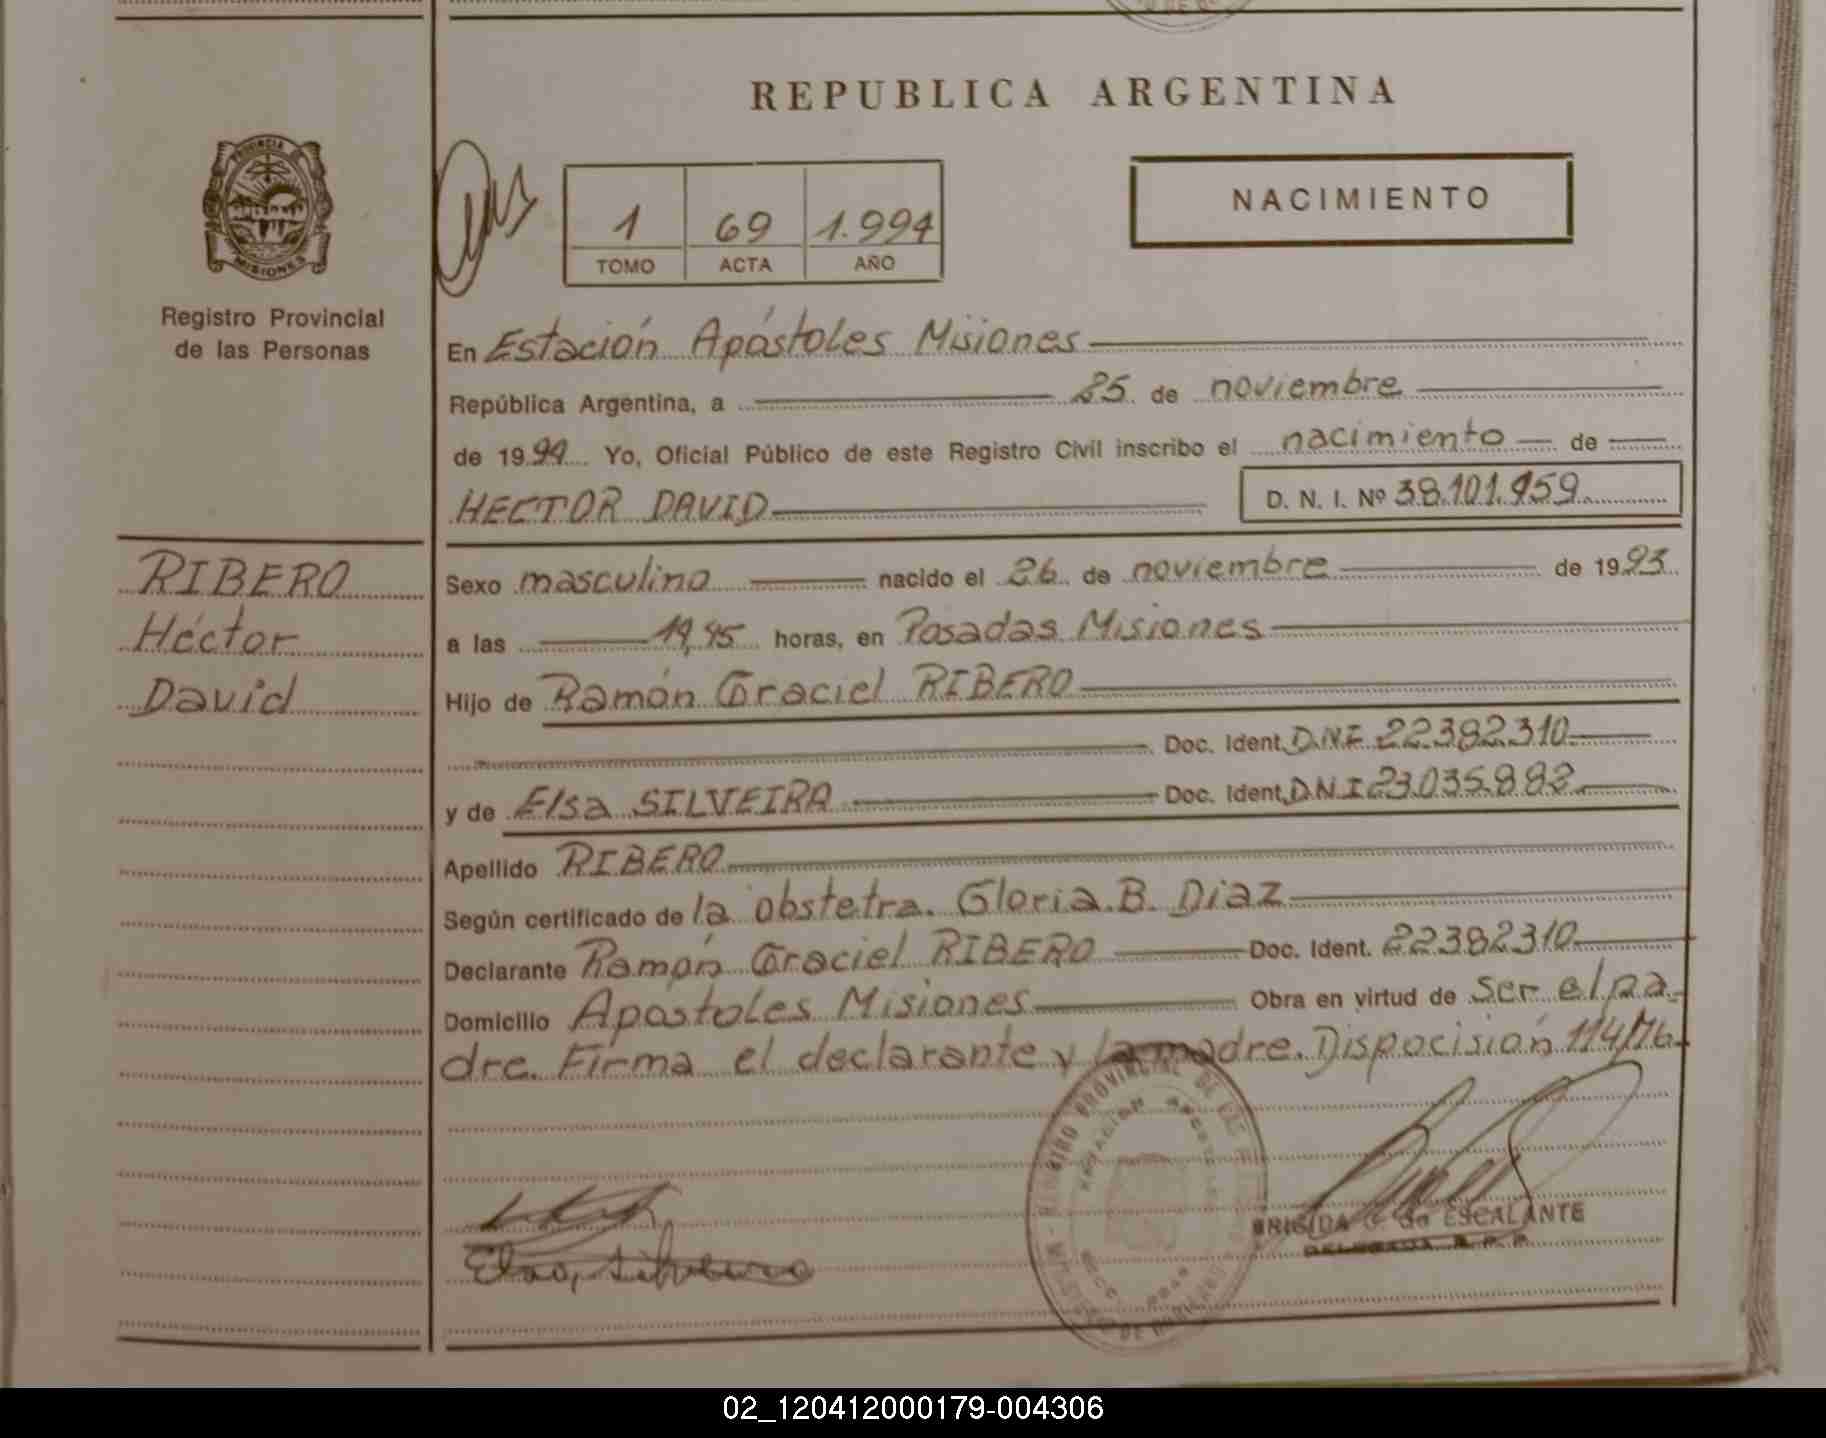 REPUBLICA ARGENTINA
PROVINCIA
MISIONES
Registro Provincial
de las Personas
1 69 1.994
TOMO ACTA AÑO
NACIMIENTO
En Estación Apóstoles Misiones
República Argentina, a 25 de noviembre
de 1994 Yo, Oficial Público de este Registro Civil inscribo el nacimiento de
HECTOR DAVID D. N. I. Nº 38.101.959
RIBERO
Héctor
David
Sexo masculino nacido el 26 de noviembre de 1993
a las 19,45 horas, en Posadas Misiones
Hijo de Ramón Graciel RIBERO
Doc. Ident. D.N.I. 22.382.310
y de Elsa SILVEIRA Doc. Ident. D.N.I 23.035.882
Apellido RIBERO
Según certificado de la obstetra. Gloria.B. Diaz
Declarante Ramón Graciel RIBERO Doc. Ident. 22382310
Domicilio Apostoles Misiones Obra en virtud de ser el pa
dre. Firma el declarante y la madre. Dispocisión 114/76
REGISTRO PROVINCIAL DE LAS
BRIGIDA G. de ESCALANTE
DELEGADA R. P. P.
Elsa Silveira
02_120412000179-004306